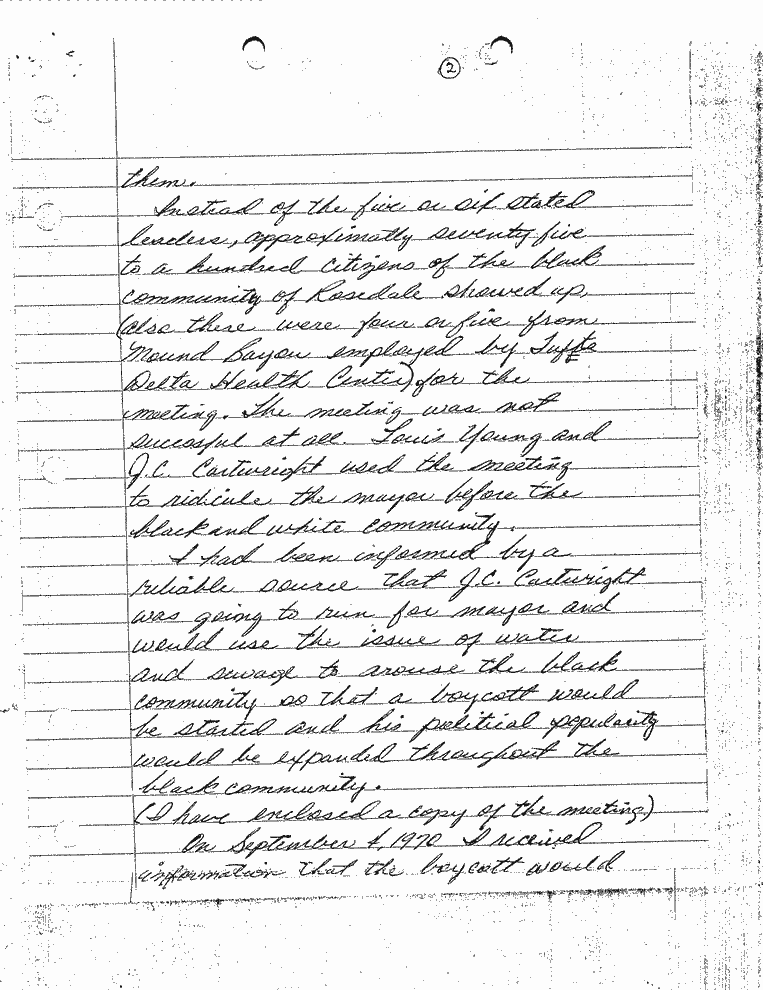 2
them.
Instead of the five or six stated
leaders, approximatly seventy five
to a hundred citizens of the black
community of Rosedale showed up,
(also there were four or five from
Mound Bayou employed by Tufts
Delta Health Center) for the
meeting. The meeting was not
succesful at all. Louis Young and
J.C. Cartwright used the meeting
to ridicule the mayor before the
black and white community.
I had been informed by a
reliable source that J.C. Cartwright
was going to run for mayor and
would use the issue of water
and sewage to arouse the black
community so that a boycott would
be started and his political popularity
would be expanded throughout the
black community.
(I have enclosed a copy of the meeting)
On September 1, 1970 I received
information that the boycott would